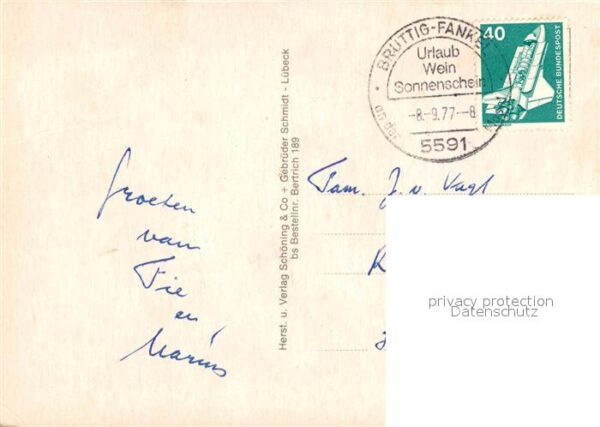 BRUTTIG-FANKEL
Urlaub
Wein
Sonnenschein
-8.-9.77--8
5591
40
DEUTSCHE BUNDESPOST
Groeten
van
Fie
en
Marius
Herst. u. Verlag Schöning & Co + Gebrüder Schmidt - Lübeck
bs Bestellnr. Bertrich 189
Fam. J. v. Vugt
privacy protection
Datenschutz